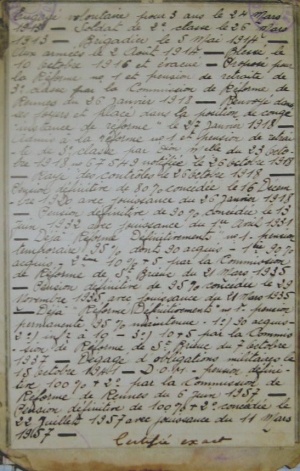 Engagé volontaire pour 3 ans le 24 Mars
1913 — Soldat de 2e classe le 25 Mars
1913 — Brigadier le 5 Mars 1914 —
aux armées le 2 Août 1914 — Blessé le
10 octobre 1916 et évacué — Proposé pour
la Réforme no 1 et pension de retraite de
3e classe par la Commission de Réforme de
Rennes du 26 janvier 1918 — Renvoyé dans
ses foyers et placé dans la position de congé
de réforme le 27 janvier 1918 —
Admis à la réforme no 1 et pension de retraite
de classe par Don du 23 octo-
bre 1918 — 67549 notifiée le 25 octobre 1918
— Rayé des contrôles le 25 octobre 1918 —
Pension définitive de 80% concédée le 16 Décem-
bre 1920 avec jouissance du 26 janvier 1918
— Pension définitive de 90% concédée le 13
juin 1932 avec jouissance du 1er Avril 1931
— Déjà Réformé Définitivement no 1 pension
temporaire 95% dont 90 acquis — 90%
acquis — 2me 10% + 5 par la Commission
de Réforme de St Brieuc du 21 Mars 1935
— Pension définitive de 95% concédée le 29
Novembre 1935 avec jouissance du 21 Mars 1935
— Déjà Réformé Définitivement no 1 pension
permanente 95% maintenue: 1o) 90 acquis
2o) 10 + 5 par la Commis-
sion de Réforme de St Brieuc du 7 octobre
1937 — Dégagé d'obligations militaires le
15 octobre 1941 — pension défini-
tive 100% + 2o par la Commission de
Réforme de Rennes du 6 juin 1957 —
Pension définitive de 100% + 2o concédée le
22 juillet 1957 avec jouissance du 11 Mars
1957 —
Certifié exact